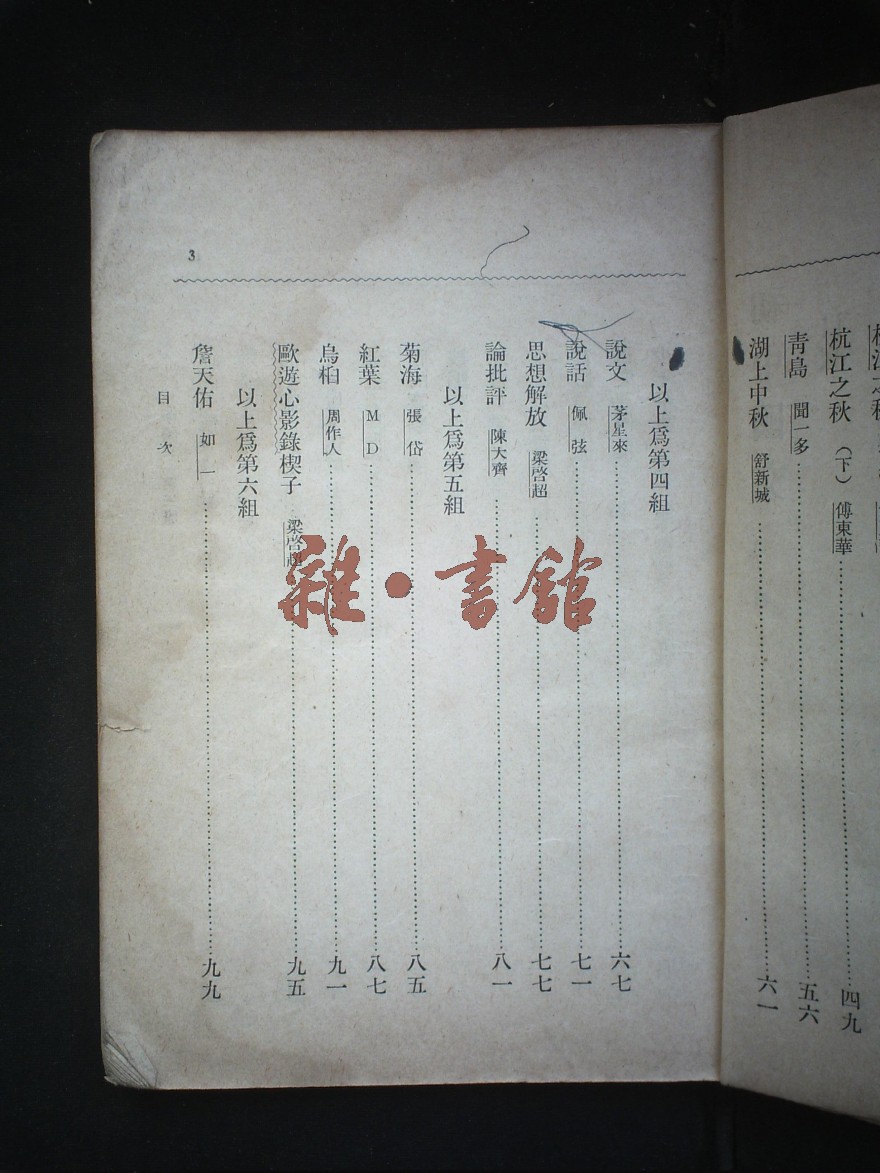 杭江之秋（下） 傅東華 四九
青島 聞一多 五六
湖上中秋 舒新城 六一
3
以上爲第四組
說文 茅星來 六七
說話 佩弦 七一
思想解放 梁啓超 七七
論批評 陳大齊 八一
以上爲第五組
菊海 張岱 八五
紅葉 MD 八七
烏桕 周作人 九一
歐遊心影錄楔子 梁啓超 九五
以上爲第六組
詹天佑 如一 九九
目次
雜·書館